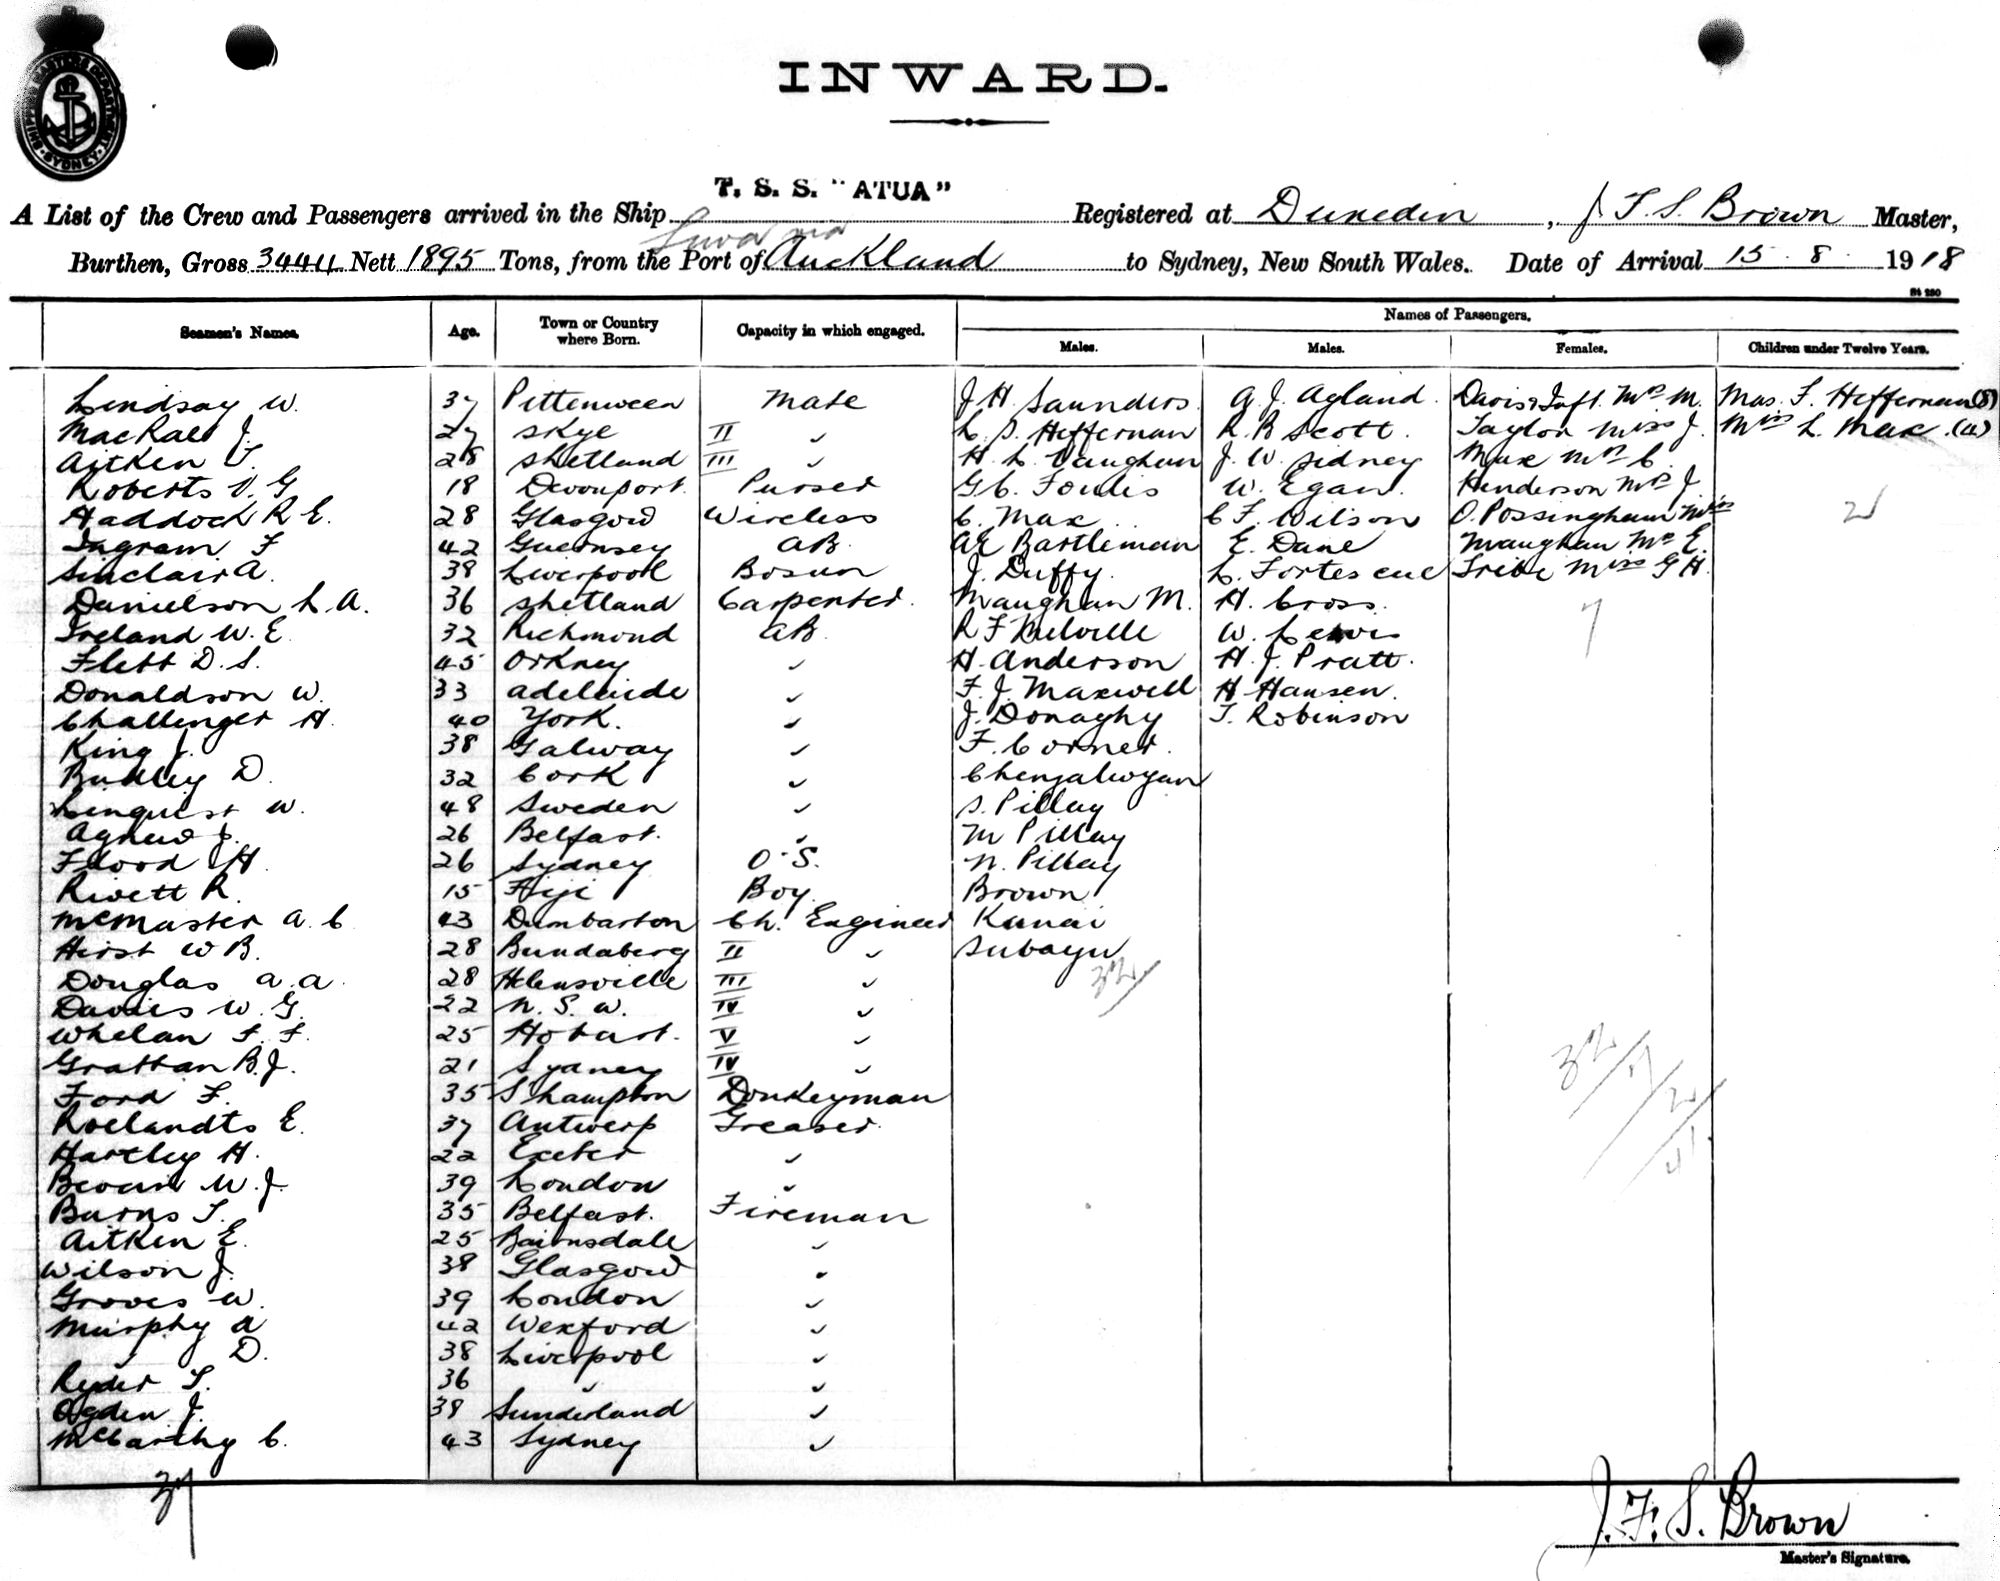 SHIPPING MASTERS DEPARTMENT SYDNEY
INWARD.
T. S. S. "ATUA"
A List of the Crew and Passengers arrived in the Ship Registered at Dunedin, J F. S. Brown Master,
Suva via
Burthen, Gross 3444 Nett 1895 Tons, from the Port of Auckland to Sydney, New South Wales. Date of Arrival 15. 8. 1918
St 280
Seamen's Names. Age. Town or Country where Born. Capacity in which engaged. Names of Passengers.
Males. Males. Females. Children under Twelve Years.
Lindsay W. 37 Pittenween Mate J. H. Saunders. A. J. Agland. Davis Taft. Mrs M. Mas. F. Heffernan (8)
MacRae J. 27 Skye II ✓ L. S. Heffernan R. B Scott. Taylor Miss J. Miss L. Max. (11)
Aitken T. 28 Shetland III ✓ H. L. Vaughan J. W. Sidney Max Mrs C.
Roberts V. G 18 Devonport. Purser G C. Foulis W. Egan. Henderson Mrs J.
Haddock R E. 28 Glasgow Wireless C. Max C F. Wilson O. Possingham Miss 2
Ingram F 42 Guernsey AB. AE Bartleman E. Dane Maughan Mrs E.
Sinclair A. 38 Liverpool Bosun J. Duffy. L. Fortescue Tribe Miss G H.
Danielson L. A. 36 Shetland Carpenter. Maughan M. H. Cross. 7
Ireland W. E. 32 Richmond AB. R F Melville W. Lewis
Flett D. S. 45 Orkney ✓ H. Anderson H. J. Pratt.
Donaldson W. 33 Adelaide ✓ F. J. Maxwell H Hansen.
Challenger H. 40 York. ✓ J. Donaghy T. Robinson
King J. 38 Galway ✓ F. Corner.
Buckley D. 32 Cork ✓ Chengalwoyan
Lenquist W. 48 Sweden ✓ S. Pillay
Agnew J. 26 Belfast. ✓ M Pillay
Flood H. 26 Sydney O. S. N. Pillay
Rivett R. 15 Fiji Boy. Brown
McMaster A. C 43 Dumbarton Ch. Engineer Kanai
Hirst W B. 28 Bundaberg II ✓ Subayu
Douglas A. A. 28 Helensville III ✓ 32
Davies W. G. 22 N. S. W. IV ✓
Whelan F. F. 25 Hobart. V ✓ 32
Grattan B. J. 21 Sydney IV ✓ 7
Ford F. 35 S'hampton Donkeyman 2
Roelandts E. 37 Antwerp Greaser. 41.
Hartley H. 22 Exeter ✓
Bevan W. J. 39 London ✓
Burns T. 35 Belfast. Fireman
Aitken E. 25 Bairnsdale ✓
Wilson J. 38 Glasgow ✓
Groves W. 39 London ✓
Murphy A 42 Wexford ✓
" D. 38 Liverpool ✓
Ryder T. 36 ✓ ✓
Ogden J. 38 Sunderland ✓
McCarthy C. 43 Sydney ✓
37
J. F. S. Brown
Master's Signature.